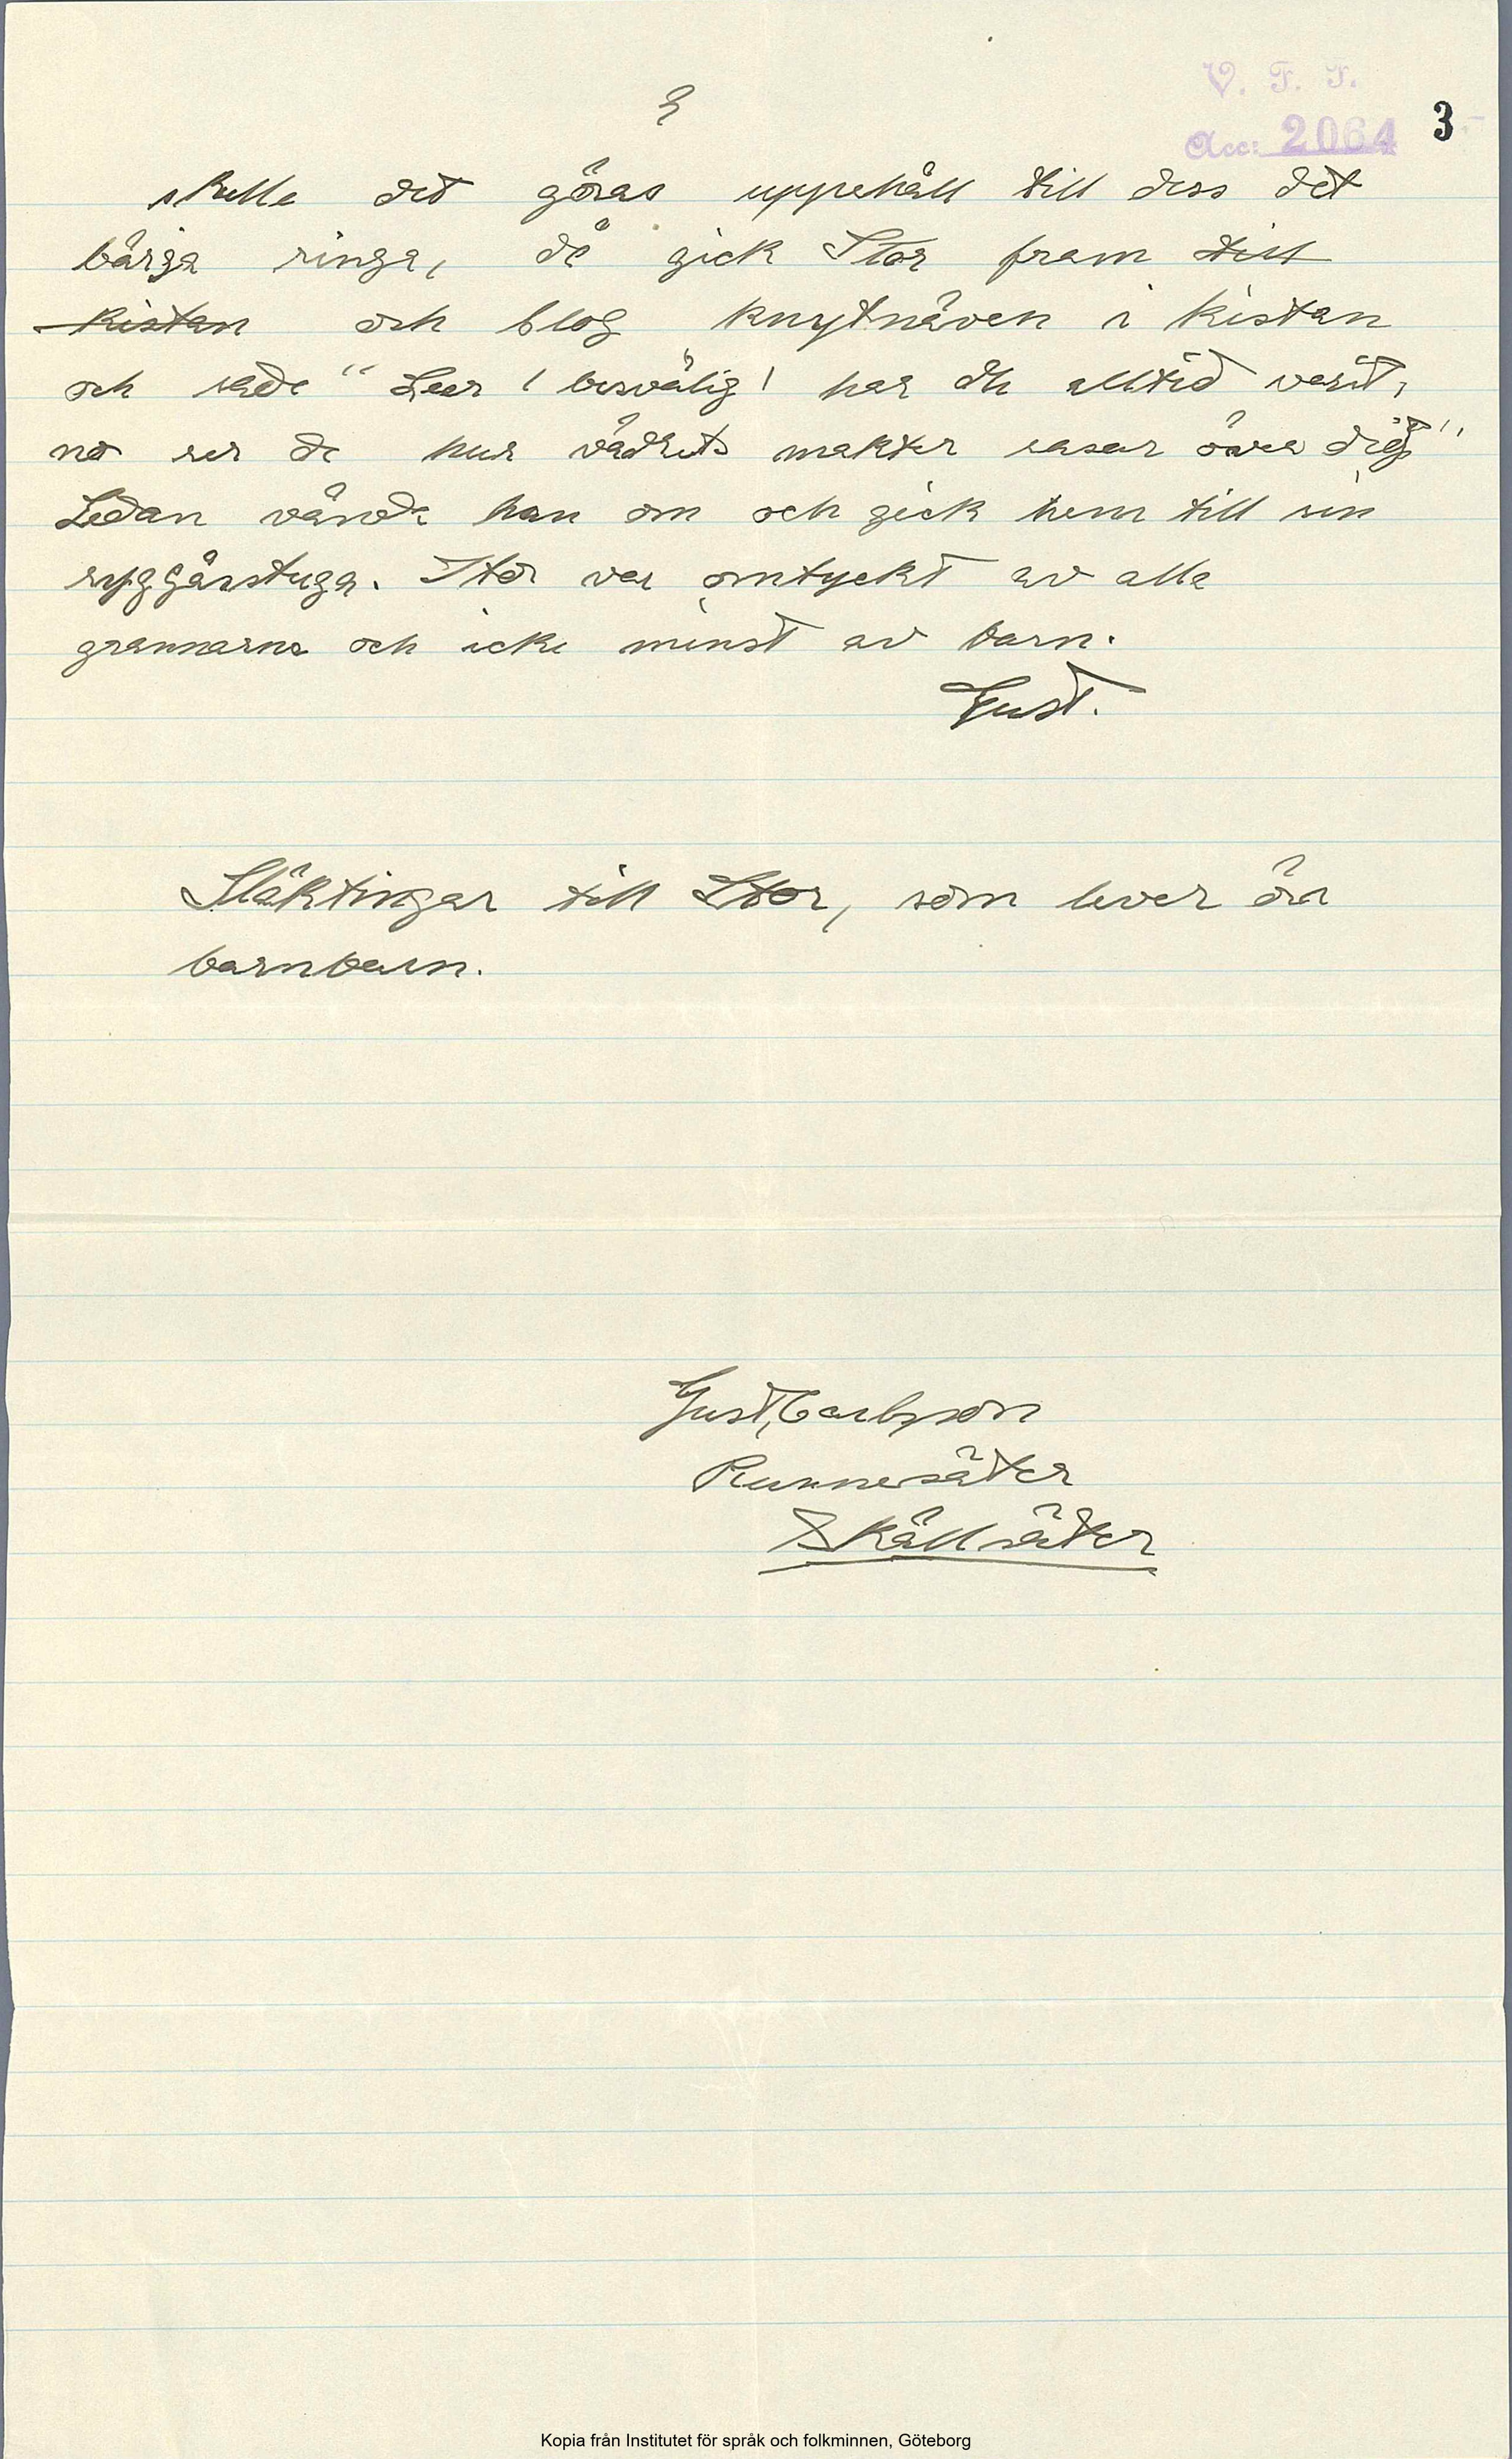 V. F. F.
3
Acc: 2064 3
skulle det göras uppehåll till dess det
börja ringa, då gick Stor fram till
kistan och slog knytnäven i kistan
och sade "Leer (besvälig) har du alltid varit,
no ser du hur vädrets makter rasar över dig"
Sedan vände han om och gick hem till sin
ryggåsstuga. Stor var omtyckt av alla
grannarna och icke minst av barn.
Gust.
Släktingar till Stor, som lever är
barnbarn.
Gust. Carlsson
Runnesäter
Skällsäter
Kopia från Institutet för språk och folkminnen, Göteborg